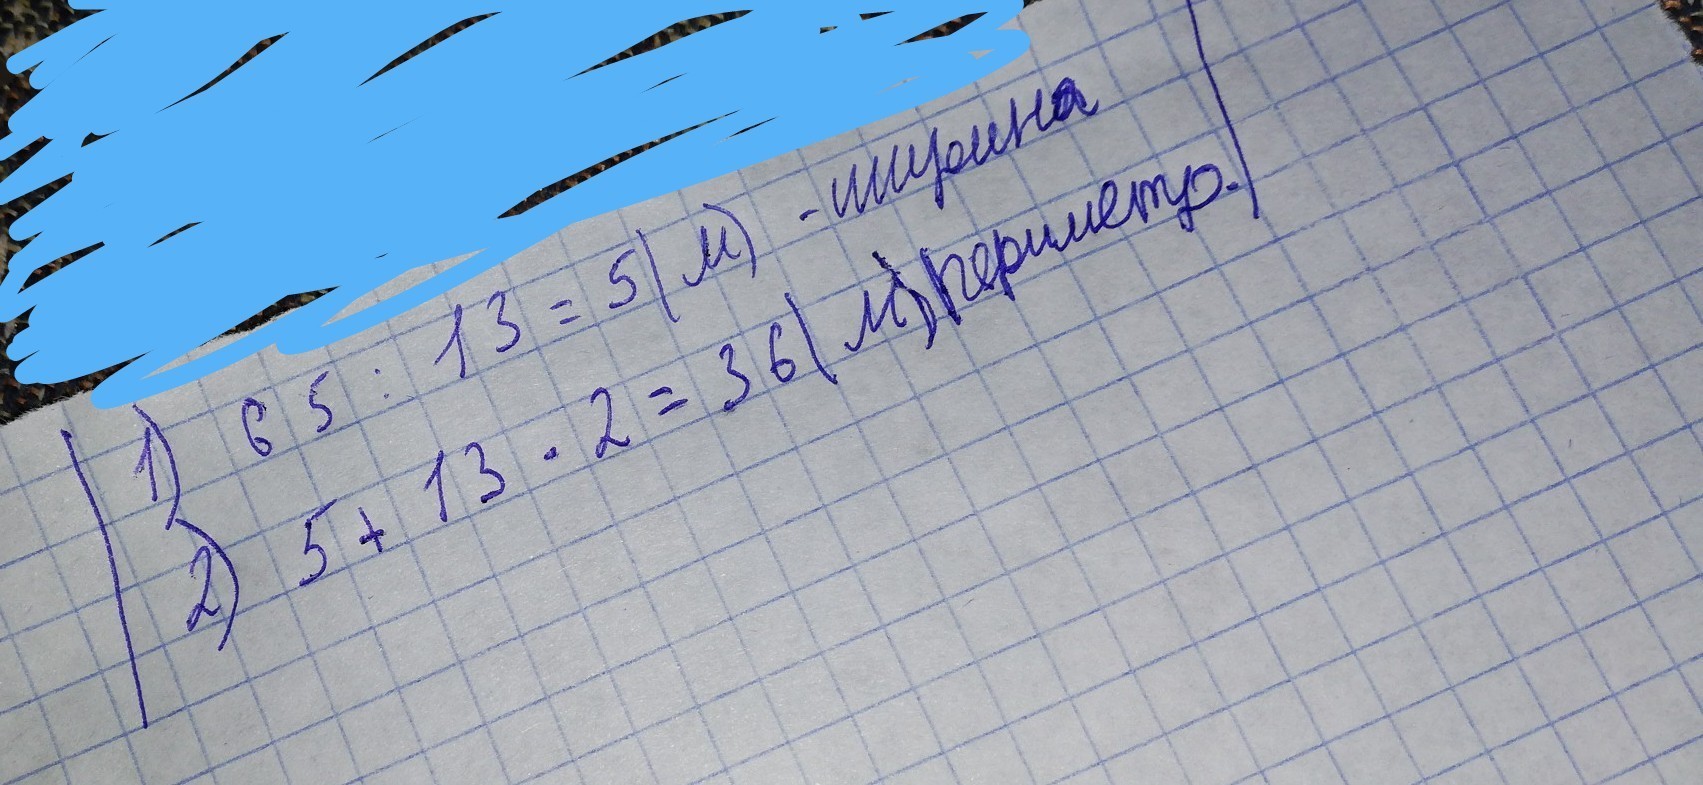 1) 65 : 13 = 5 (м) - ширина
2) 5 + 13 · 2 = 36 (м) периметр.